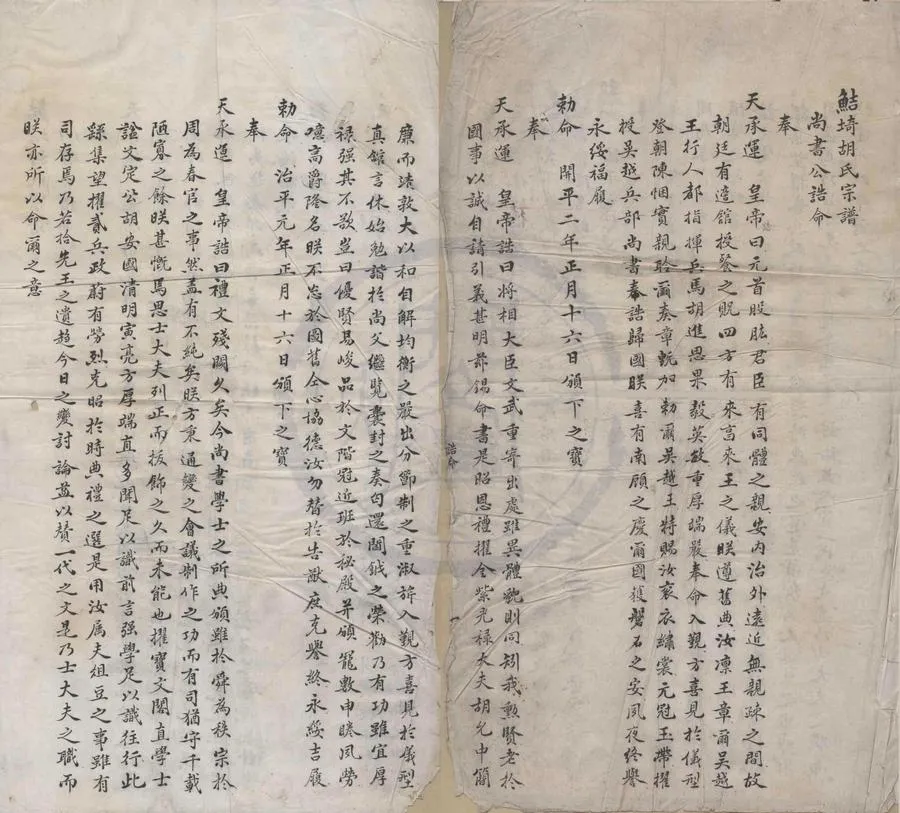 鮚埼胡氏宗譜
尚書公誥命
奉
天承運　皇帝曰元首股肱君臣有同體之親安內治外遠近無親疎之間故
朝廷有造舘授餐之貺四方有　來享來王之儀朕遵舊典汝凜王章爾吳越
王行人都指揮兵馬胡進思果毅英敏重厚端嚴奉命入覲方喜見於儀型
登朝陳悃實親聆爾奏章甄加　勅爾吳越王特賜汝衮衣繡裳元冠玉帶擢
授吳越兵部尚書奉誥歸國朕喜有南顧之慶爾國獲磐石之安夙夜終譽
永綏福履
勅命　開平二年正月十六日頒下之寶
奉
天承運　皇帝誥曰將相大臣文武重寄出處雖異體貌則同矧我勲賢老於
國事以誠自請引義甚明茲錫命書是昭恩禮擢金紫光祿大夫胡允申簡
誥命
廉而靖敦大以和自解均衡之嚴出分節制之重淑旂入覲方喜見於儀型
真舘言休始勉諧於尚父繼覽囊封之奏勾還閫鉞之榮勸乃有功雖宜厚
祿强其不欲豈曰優賢易峻品於文階冠近班於秘殿并頒寵數申睠夙勞
噫高爵隆名朕不忘於國舊仝心協德汝勿替於告猷庶克譽終永綏吉履
勅命　治平元年正月十六日頒下之寶
奉
天承運　皇帝誥曰禮文殘闕久矣今尚書學士之所典頒雖於舜為秩宗於
周為春官之事然盖有不純矣朕方秉通變之會議制作之功而有司猶守千載
陋寡之餘朕甚慨焉思士大夫列正而拔飾之久而未能也擢寶文閣直學士
諡文定公胡安國清明寅亮方厚端直多聞足以識前言强學足以識往行此
繇集望擢貳兵政蔚有勞烈克昭於時典禮之選是用汝屬夫俎豆之事雖有
司存焉乃若拾先王之遺趨今日之變討論葢以贊一代之文是乃士大夫之職而
朕亦所以命爾之意